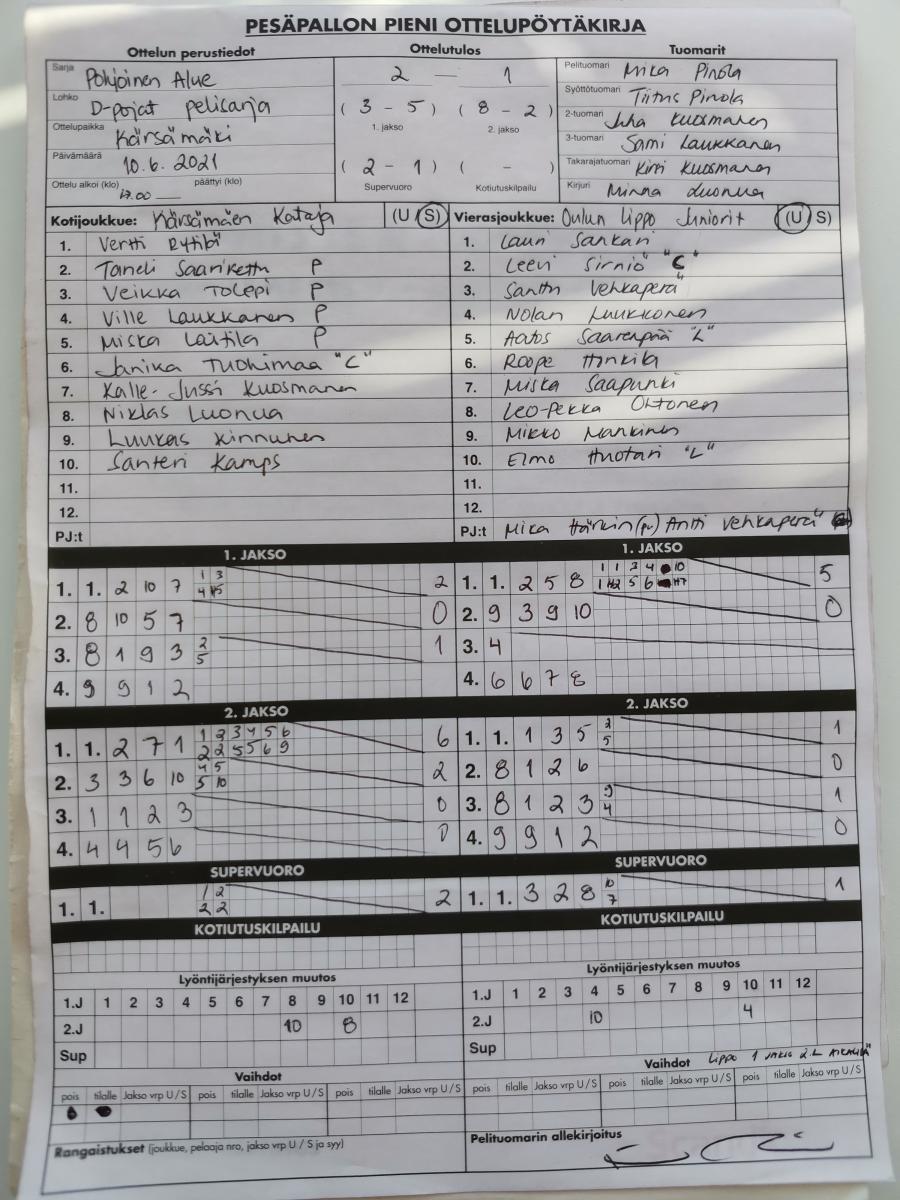 PESÄPALLON PIENI OTTELUPÖYTÄKIRJA
Ottelun perustiedot
Sarja Pohjoinen Alue
Lohko D-pojat pelisarja
Ottelupaikka Kärsämäki
Päivämäärä 10.6.2021
Ottelu alkoi (klo) 17.00 päättyi (klo)
Ottelutulos
2 — 1
(3 - 5) (8 - 2)
1. jakso 2. jakso
(2 - 1) ( - )
Supervuoro Kotiutuskilpailu
Tuomarit
Pelituomari Mika Pirola
Syöttötuomari Tiitus Pirola
2-tuomari Juha Kuosmanen
3-tuomari Sami Laukkanen
Takarajatuomari Kirsi Kuosmanen
Kirjuri Minna Luonua
Kotijoukkue: Kärsämäen Kataja (U S)
1. Vertti Rytilä
2. Taneli Saariketta P
3. Veikka Tolepi P
4. Ville Laukkanen P
5. Miska Laitila P
6. Janika Tuohimaa "C"
7. Kalle-Jussi Kuosmanen
8. Niklas Luonua
9. Luukas Kinnunen
10. Santeri Kamps
11.
12.
PJ:t
Vierasjoukkue: Oulun Lippo Juniorit (U S)
1. Lauri Sankari
2. Leevi Sirniö "C"
3. Santtu Vehkaperä
4. Nolan Luukkonen
5. Aatos Saarenpää "L"
6. Roope Honkila
7. Miska Saapunki
8. Leo-Pekka Ohtonen
9. Mikko Mankinen
10. Elmo Huotari "L"
11.
12.
PJ:t Mika Härkin (pv) Antti Vehkaperä
1. JAKSO
1. 1. 2 10 7 1 3 2
4
2. 8 10 5 7 0
3. 8 1 9 3 2 1
5
4. 9 9 1 2
1. JAKSO
1. 1. 2 5 8 1 1 3 4 10 5
5 6
2. 9 3 9 10 0
3. 4
4. 6 6 7 8
2. JAKSO
1. 1. 2 7 1 1 2 3 4 5 6 6
2 2 5 5 6 9
2. 3 3 6 10 4 5 2
5 10
3. 1 1 2 3 0
4. 4 4 5 6 0
2. JAKSO
1. 1. 1 3 5 2 1
5
2. 8 1 2 6 0
3. 8 1 2 3 9 1
4
4. 9 9 1 2 0
SUPERVUORO
1. 1. 1 2 2
2 2
SUPERVUORO
1. 1. 3 2 8 10 1
7
KOTIUTUSKILPAILU
KOTIUTUSKILPAILU
Lyöntijärjestyksen muutos
1.J 1 2 3 4 5 6 7 8 9 10 11 12
2.J 10 8
Sup
Lyöntijärjestyksen muutos
1.J 1 2 3 4 5 6 7 8 9 10 11 12
2.J 10 4
Sup
Vaihdot
pois tilalle Jakso vrp U/S pois tilalle Jakso vrp U/S pois tilalle Jakso vrp U/S
Vaihdot Lippo 1 jakso 2.L
pois tilalle Jakso vrp U/S pois tilalle Jakso vrp U/S pois tilalle Jakso vrp U/S
Rangaistukset (joukkue, pelaaja nro, jakso vrp U / S ja syy)
Pelituomarin allekirjoitus